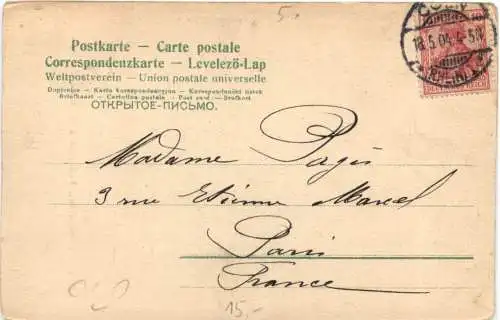 5.
CÖLN
10
18.5.04. 4-5N
(RHEIN)
DEUTSCHES REICH
Postkarte — Carte postale
Correspondenzkarte — Levelező-Lap
Weltpostverein — Union postale universelle
Dopisnice — Karta korespondencyjna — Korespondenční lístek
Briefkaart — Cartolina postale — Post card — Brefkort
ОТКРЫТОЕ-ПИСЬМО.
Madame Pagès
3 rue Etienne Marcel
Paris
France
15,-